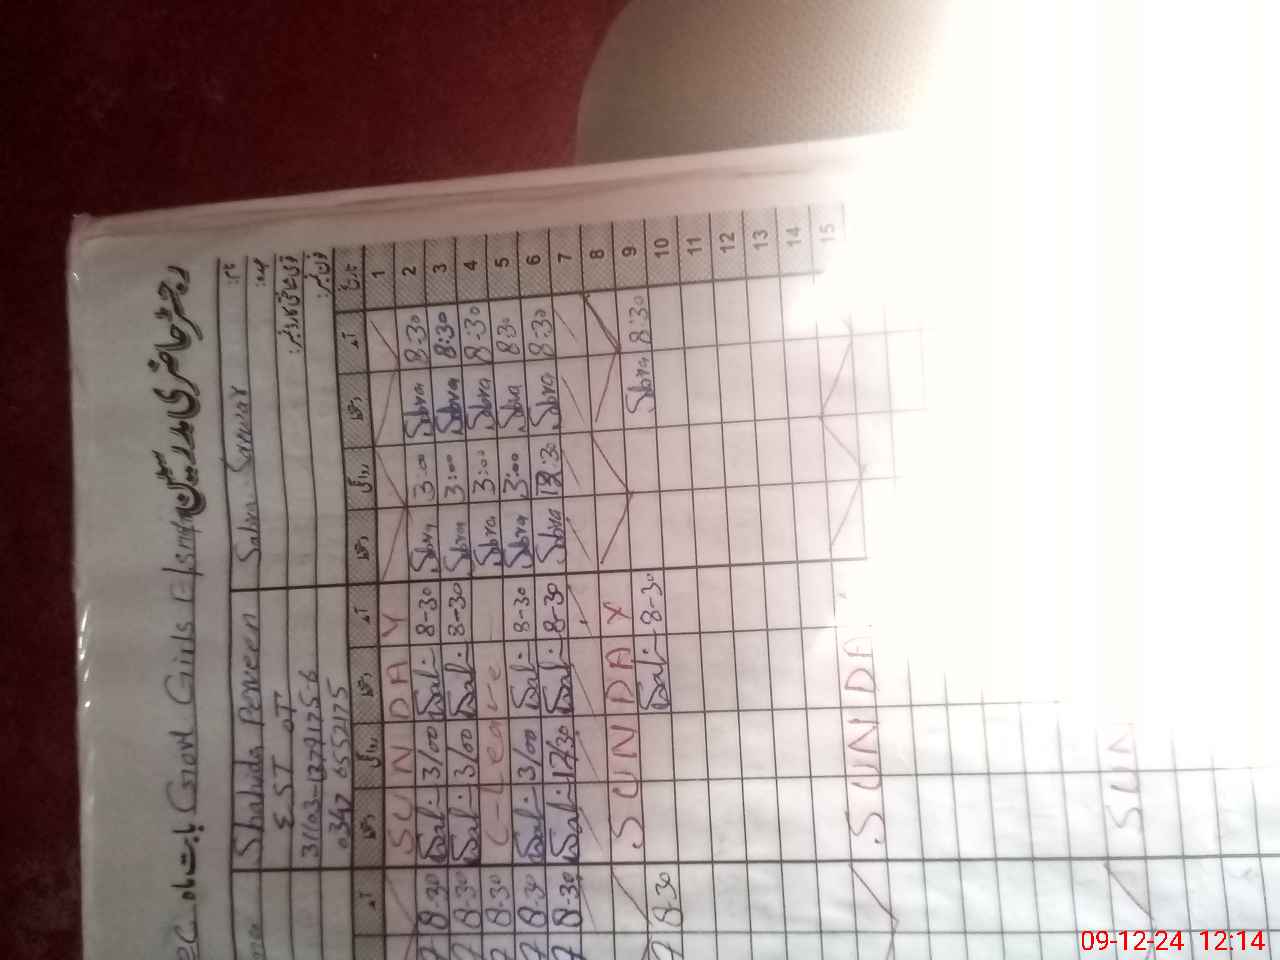 رجسٹر حاضری مدرسین سکول Govt Girls E/S بابت ماہ Dec
نام: Sabra Sarwar Shahida Perveen
عہدہ: EST
قومی شناختی کارڈ نمبر: 31103-1279175-6
فون نمبر: 0347 6552175
تاریخ آمد دستخط روانگی دستخط آمد دستخط روانگی دستخط آمد
1 SUNDAY
2 8:30 Sabra 3:00 Sabra 8-30 Sal: 3/00 Sal: 8.30
3 8:30 Sabra 3:00 Sabra 8-30 Sal: 3/00 Sal: 8.30
4 8:30 Sabra 3:00 Sabra C-Leave 8.30
5 8:30 Sabra 3:00 Sabra 8-30 Sal: 3/00 Sal: 8.30
6 8:30 Sabra 12:30 Sabra 8-30 Sal: 12/30 Sal: 8.30
7
8 SUNDAY
9 8:30 Sabra 8-30 Sal: 8.30
10
11
12
13
14
15 SUNDA
SUN
09-12-24 12:14